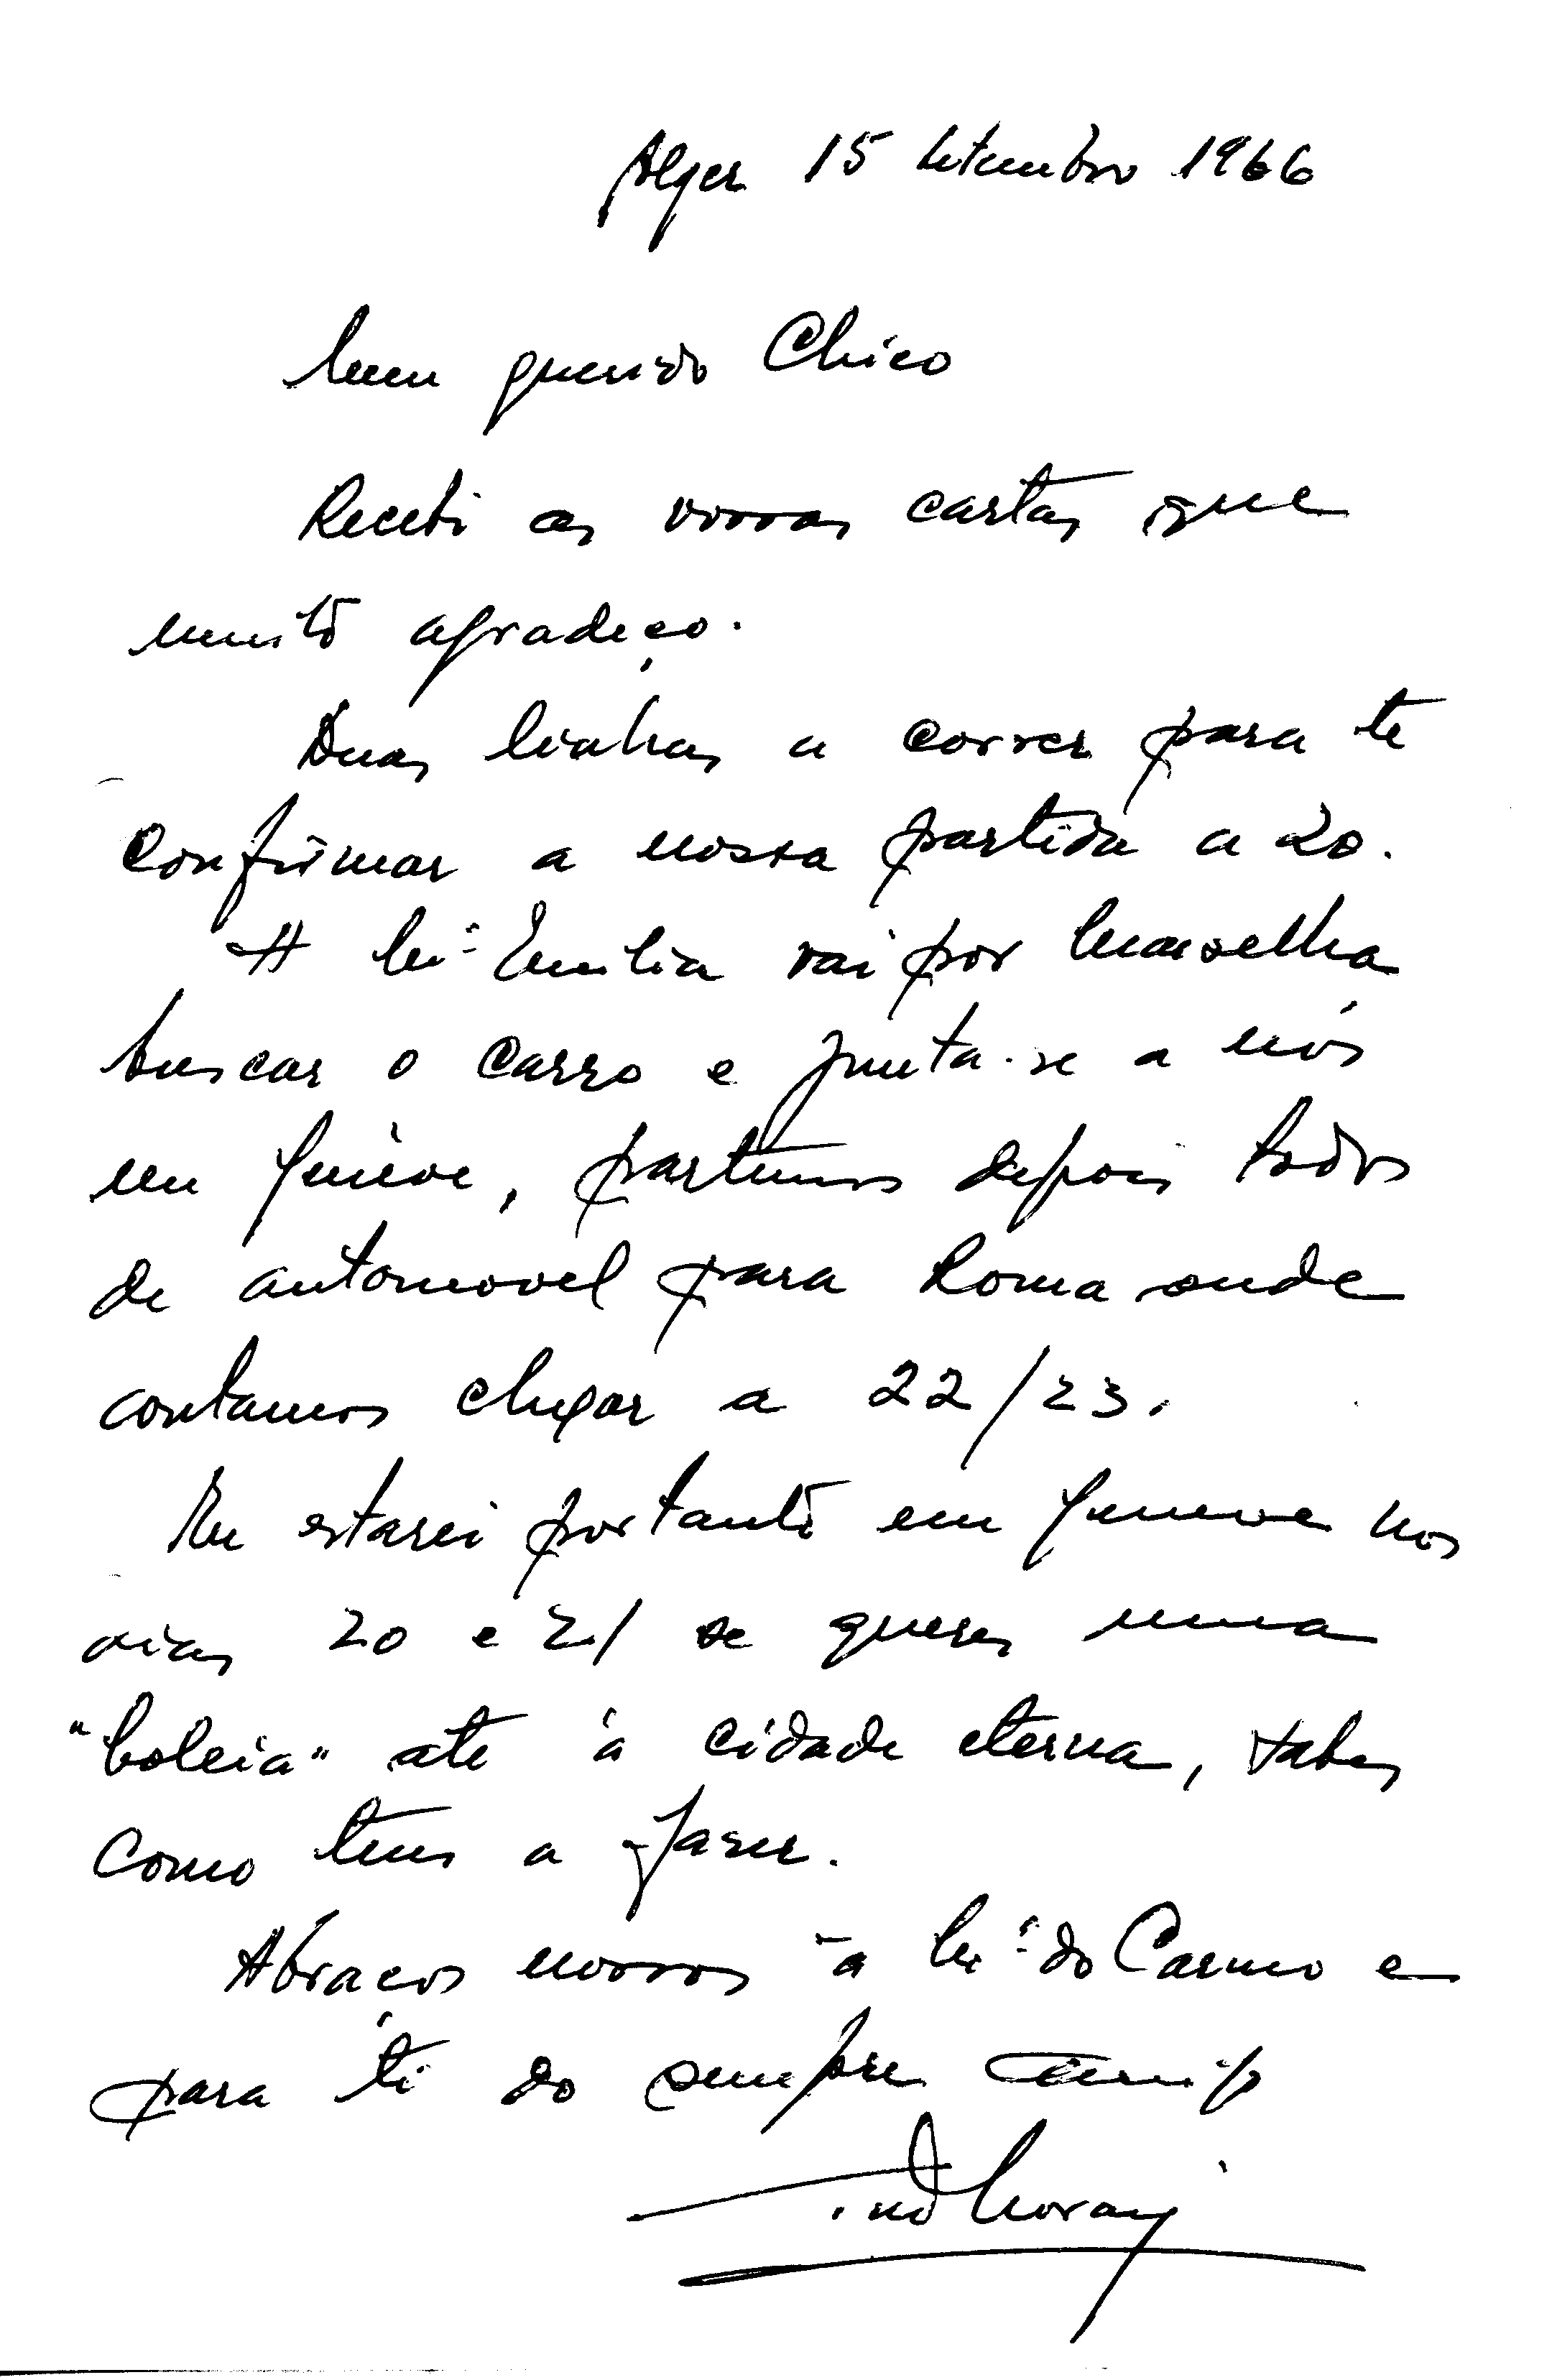 Alger 15 Setembro 1966
Meu querido Chico
Recebi as vossas cartas que
muito agradeço.
Duas linhas a correr para te
confirmar a nossa partida a 20.
A Mª Emilia vai por Marselha
buscar o carro e junta-se a nós
em Genève, partimos depois todos
de automovel para Roma onde
contamos chegar a 22/23.
Eu estarei portanto em Geneve nos
dias 20 e 21 se queres uma
"boleia" ate à cidade eterna, sabes
como tens a fazer.
Abraços nossos à Mª do Carmo e
para ti do sempre amigo